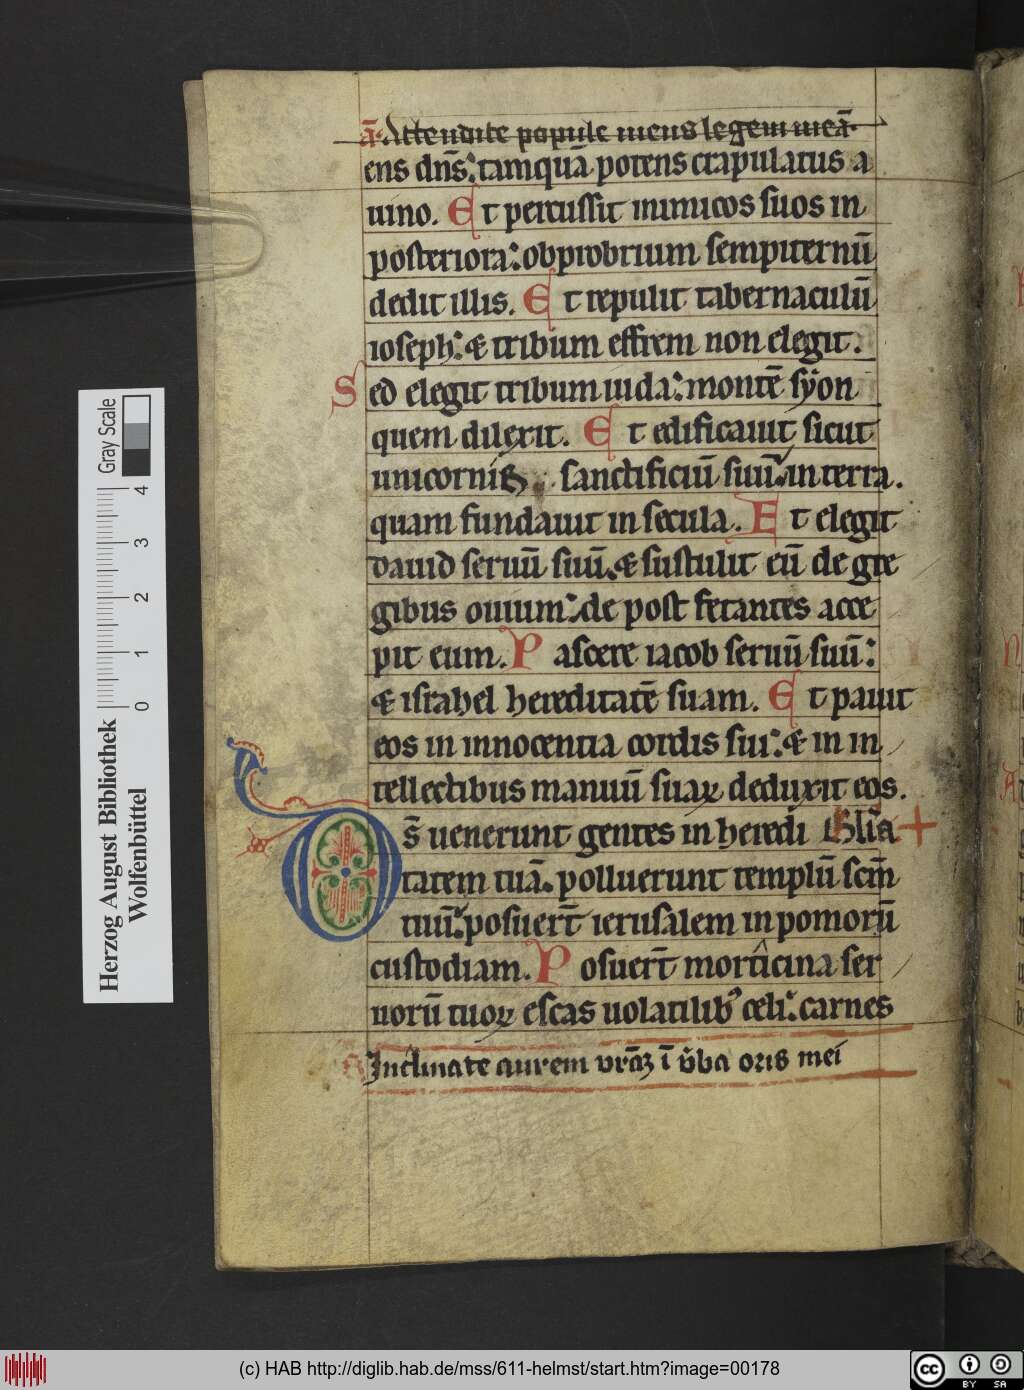 ā. Attendite popule meus legem meā.
ens dn̄s: tamquā potens crapulatus a
uino. Et percussit inimicos suos in
posteriora: obprobrium sempiternū
dedit illis. Et repulit tabernaculū
ioseph: & tribum effrem non elegit.
Sed elegit tribum iuda: montē syon
quem dilexit. Et edificauit sicut
unicornis sanctificiū suū: in terra.
quam fundauit in secula. Et elegit
dauid seruū suū. & sustulit eū de gre
gibus ouium: de post fetantes acce
pit eum. Pascere iacob seruū suū:
& israhel hereditatē suam. Et pauit
eos in innocentia cordis sui: & in in
tellectibus manuū suaꝝ deduxit eos.
Ds̄ uenerunt gentes in heredi Gl̄ia +
tatem tuā. polluerunt templū scm̄
tuū: posuerт̄ ierusalem in pomorū
custodiam. Posuerт̄ morticina ser
uorū tuoꝝ escas uolatilibꝰ celi: carnes
Inclinate aurem vr̄aꝫ ī v̄ba oris mei
Herzog August Bibliothek
Wolfenbüttel
0 1 2 3 4
Gray Scale
(c) HAB http://diglib.hab.de/mss/611-helmst/start.htm?image=00178
cc BY SA